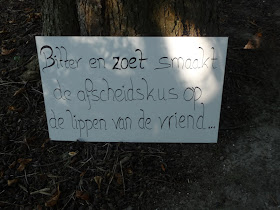 Bitter en zoet smaakt
de afscheidskus op
de lippen van de vriend...